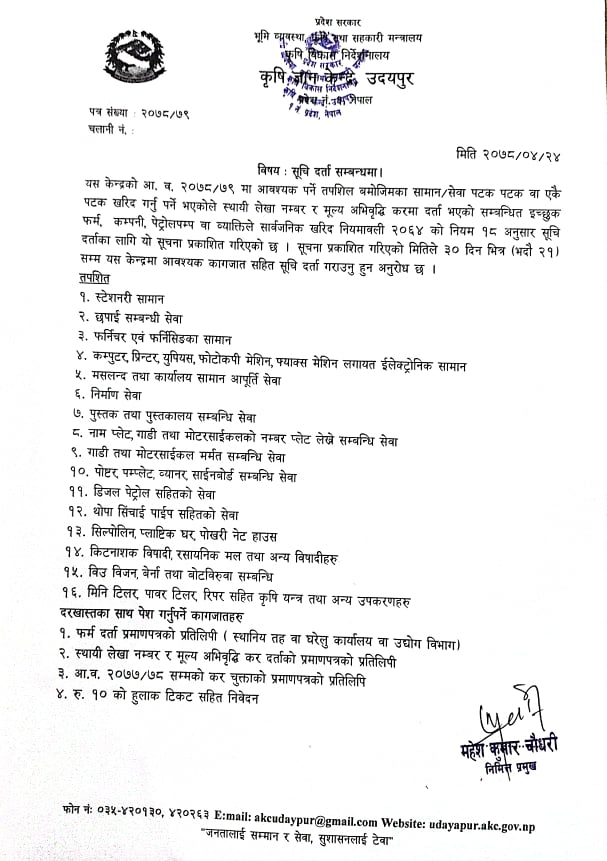 प्रदेश सरकार
भूमि व्यवस्था, कृषि तथा सहकारी मन्त्रालय
कृषि विकास निर्देशनालय
कृषि ज्ञान केन्द्र, उदयपुर
प्रदेश नं. १, नेपाल
पत्र संख्या : २०७८/७९
चलानी नं. :
मिति २०७८/०४/२४
विषय : सूचि दर्ता सम्बन्धमा।
यस केन्द्रको आ. व. २०७८/७९ मा आवश्यक पर्ने तपशिल बमोजिमका सामान/सेवा पटक पटक वा एकै
पटक खरिद गर्नु पर्ने भएकोले स्थायी लेखा नम्बर र मूल्य अभिवृद्धि करमा दर्ता भएको सम्बन्धित इच्छुक
फर्म, कम्पनी, पेट्रोलपम्प वा व्यक्तिले सार्वजनिक खरिद नियमावली २०६४ को नियम १८ अनुसार सूचि
दर्ताका लागि यो सूचना प्रकाशित गरिएको छ । सूचना प्रकाशित गरिएको मितिले ३० दिन भित्र (भदौ २१)
सम्म यस केन्द्रमा आवश्यक कागजात सहित सूचि दर्ता गराउनु हुन अनुरोध छ ।
तपशित
१. स्टेशनरी सामान
२. छपाई सम्बन्धी सेवा
३. फर्निचर एवं फर्निसिङका सामान
४. कम्पुटर, प्रिन्टर, युपियस, फोटोकपी मेशिन, फ्याक्स मेशिन लगायत ईलेक्ट्रोनिक सामान
५. मसलन्द तथा कार्यालय सामान आपूर्ति सेवा
६. निर्माण सेवा
७. पुस्तक तथा पुस्तकालय सम्बन्धि सेवा
८. नाम प्लेट, गाडी तथा मोटरसाईकलको नम्बर प्लेट लेख्ने सम्बन्धि सेवा
९. गाडी तथा मोटरसाईकल मर्मत सम्बन्धि सेवा
१०. पोष्टर, पम्प्लेट, व्यानर, साईनबोर्ड सम्बन्धि सेवा
११. डिजल पेट्रोल सहितको सेवा
१२. थोपा सिंचाई पाईप सहितको सेवा
१३. सिल्पोलिन, प्लाष्टिक घर, पोखरी नेट हाउस
१४. किटनाशक विषादी, रसायनिक मल तथा अन्य विषादीहरु
१५. विउ विजन, बेर्ना तथा बोटविरुवा सम्बन्धि
१६. मिनि टिलर, पावर टिलर, रिपर सहित कृषि यन्त्र तथा अन्य उपकरणहरु
दरखास्तका साथ पेश गर्नुपर्ने कागजातहरु
१. फर्म दर्ता प्रमाणपत्रको प्रतिलिपी ( स्थानिय तह वा घरेलु कार्यालय वा उद्योग विभाग)
२. स्थायी लेखा नम्बर र मूल्य अभिवृद्धि कर दर्ताको प्रमाणपत्रको प्रतिलिपी
३. आ.व. २०७७/७८ सम्मको कर चुक्ताको प्रमाणपत्रको प्रतिलिपि
४. रु. १० को हुलाक टिकट सहित निबेदन
महेश कुमार चौधरी
निमित्त प्रमुख
फोन नं: ०३५-४२०१३०, ४२०२६३ E:mail: akcudaypur@gmail.com Website: udayapur.akc.gov.np
"जनतालाई सम्मान र सेवा, सुशासनलाई टेवा"